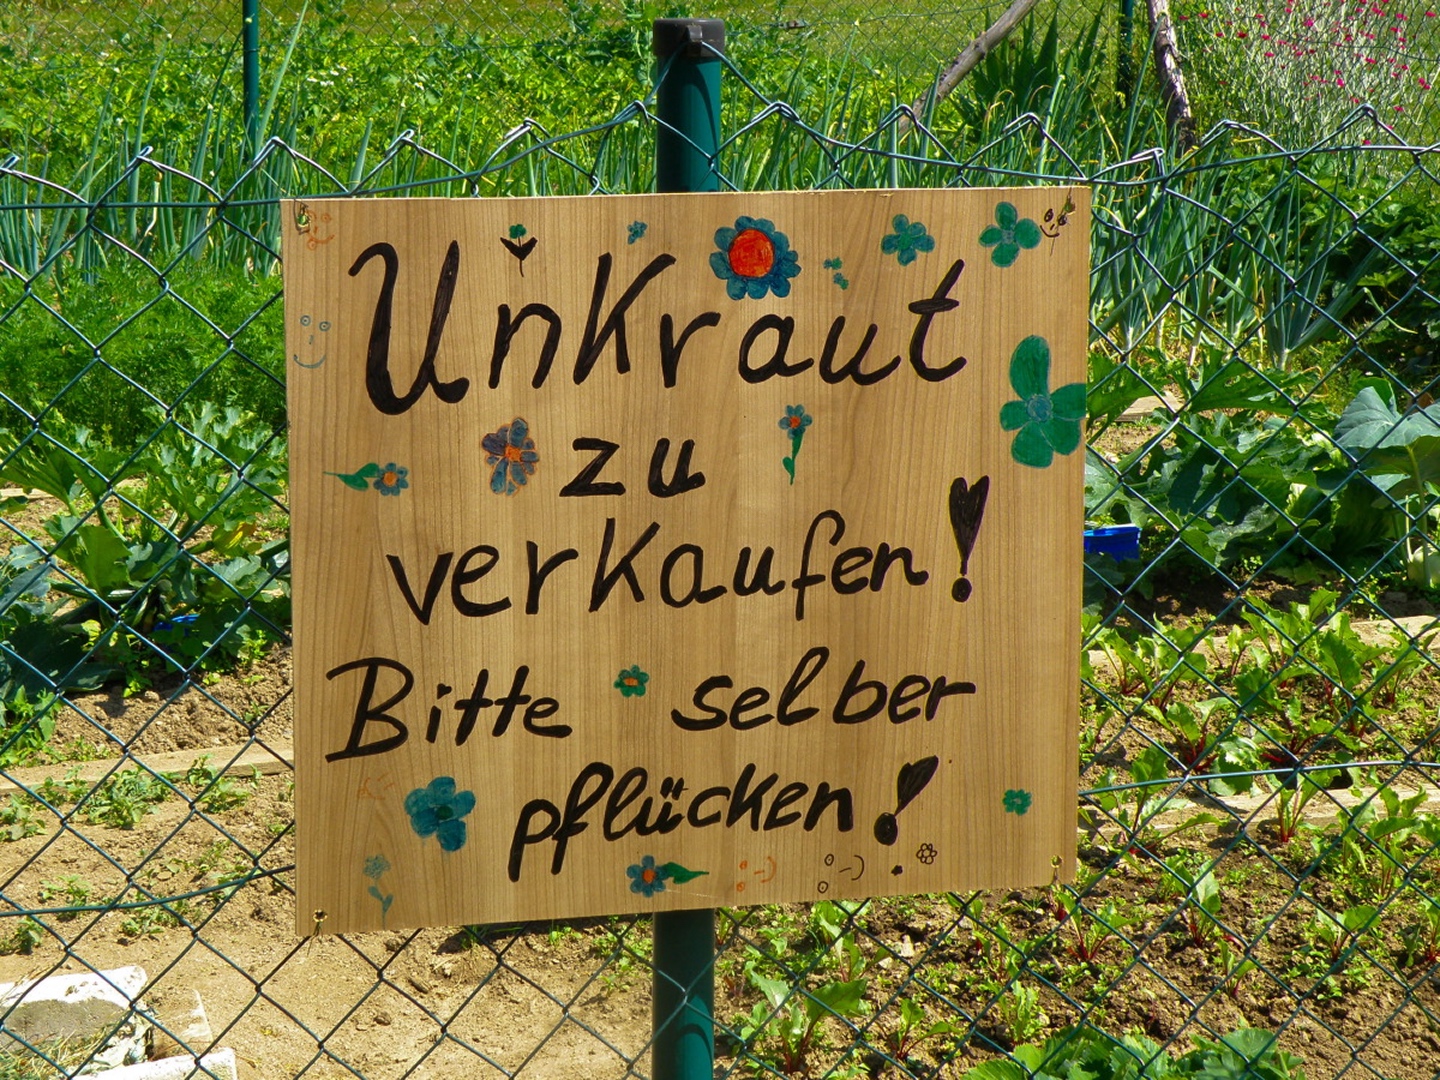 Unkraut
zu
verkaufen!
Bitte selber
pflücken!